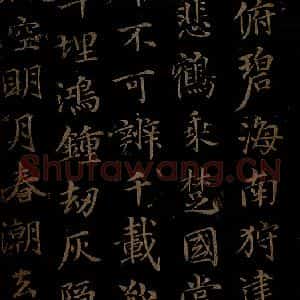 俯碧海南狩
悲鶴乘楚國
不可辨千載
埋鴻鐘劫灰隔
空明月春潮去
Shufawang.CN